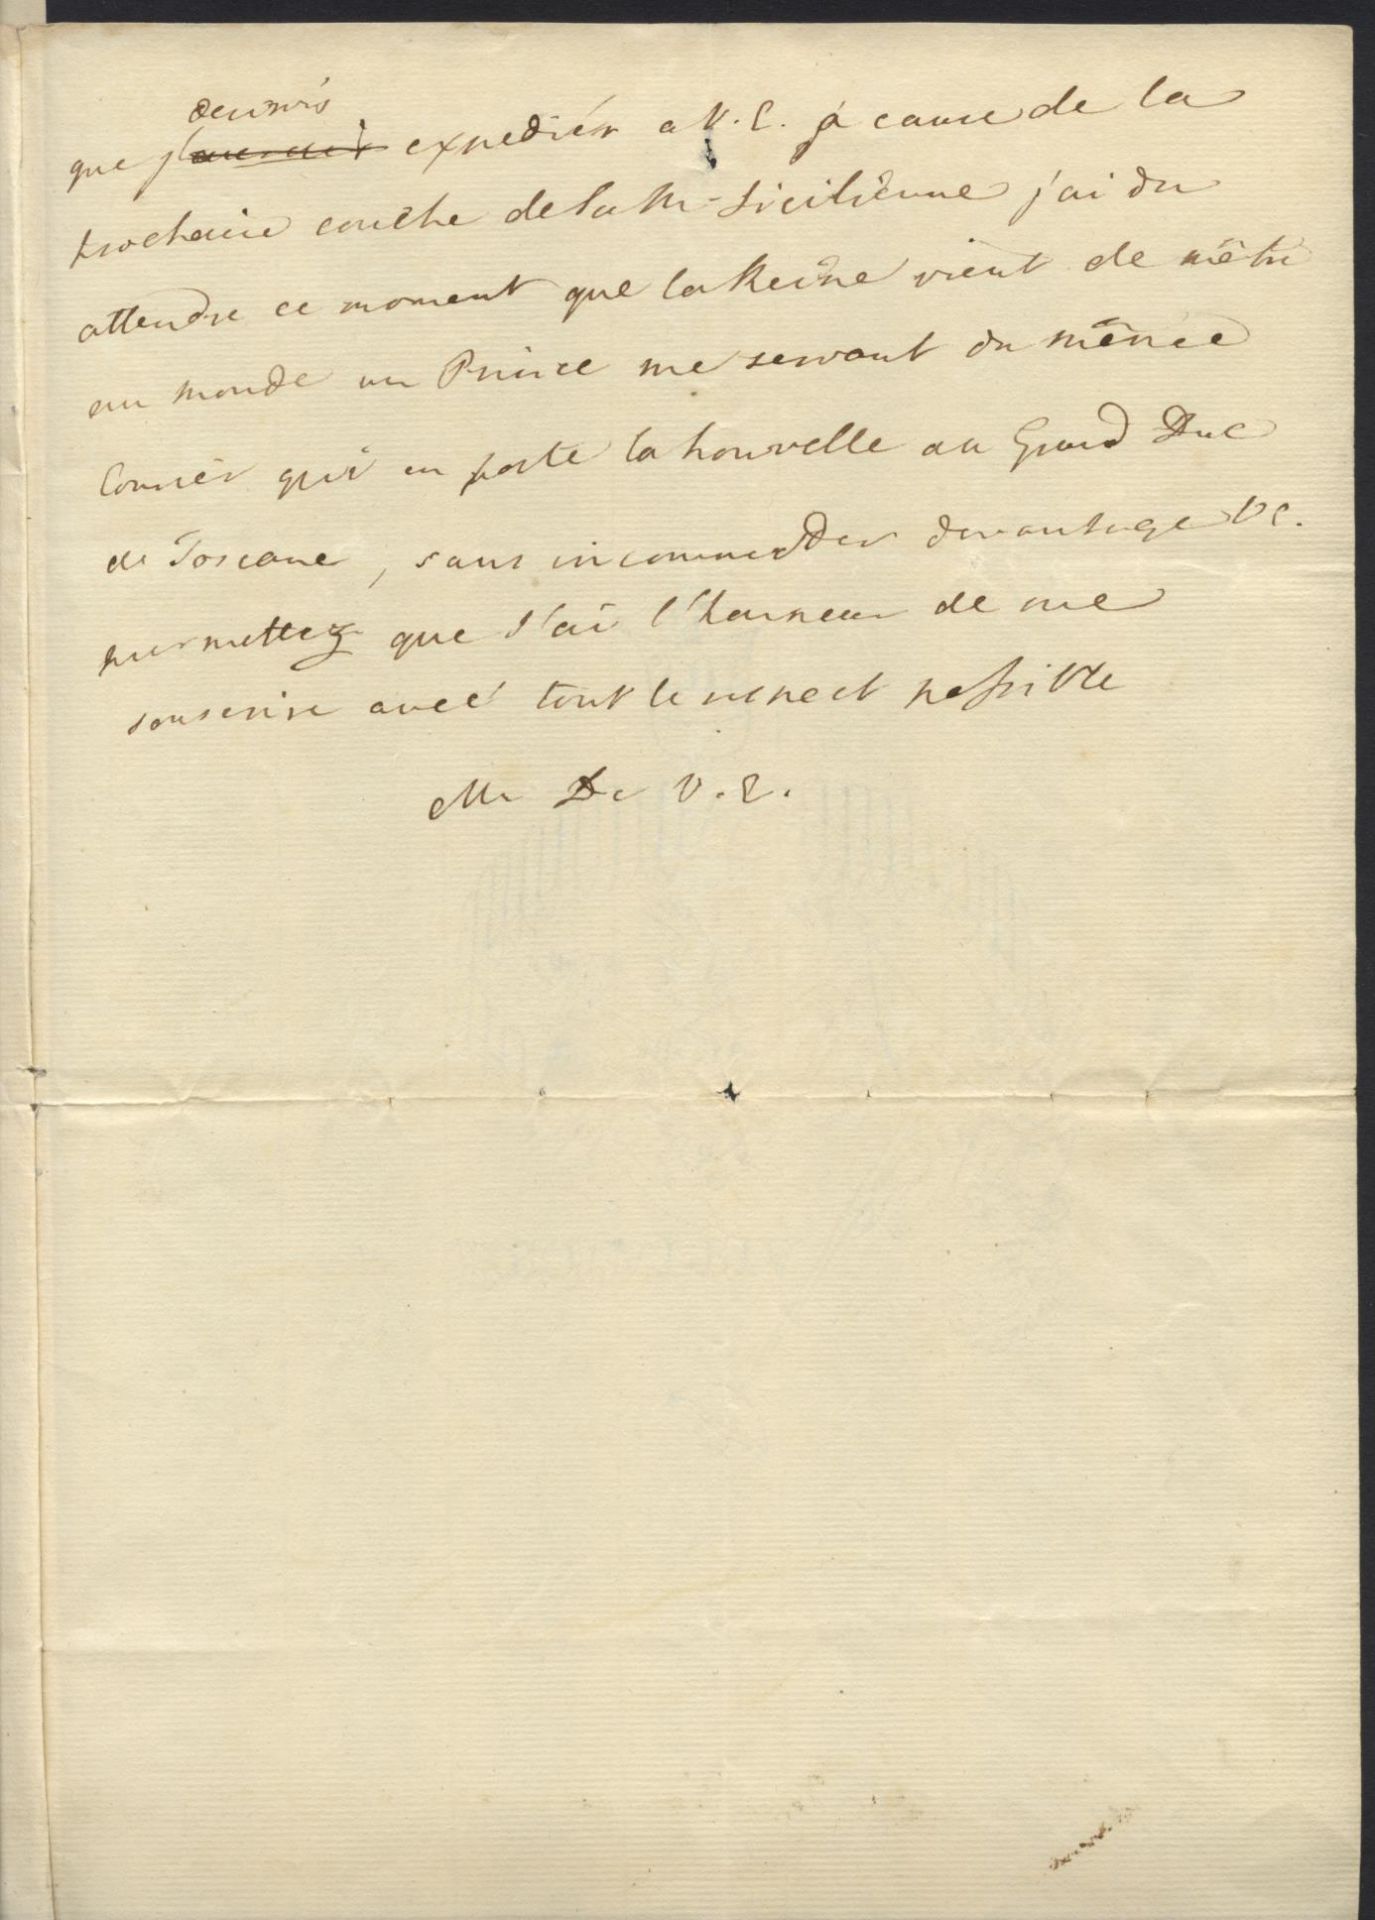 devois
que j' expediér a V. E. à cause de la
prochaine couche de la M. Sicilienne j'ai du
attendre ce moment que la Reine vient de mêtre
au monde un Prince me servant du mêmee
Couriér qui en porte la nouvelle au Grand Duc
de Toscane, sans incommoder davantage V E.
permettez que j'ai l'honneur de me
souscrire avec tout le respect possible
De V. E.